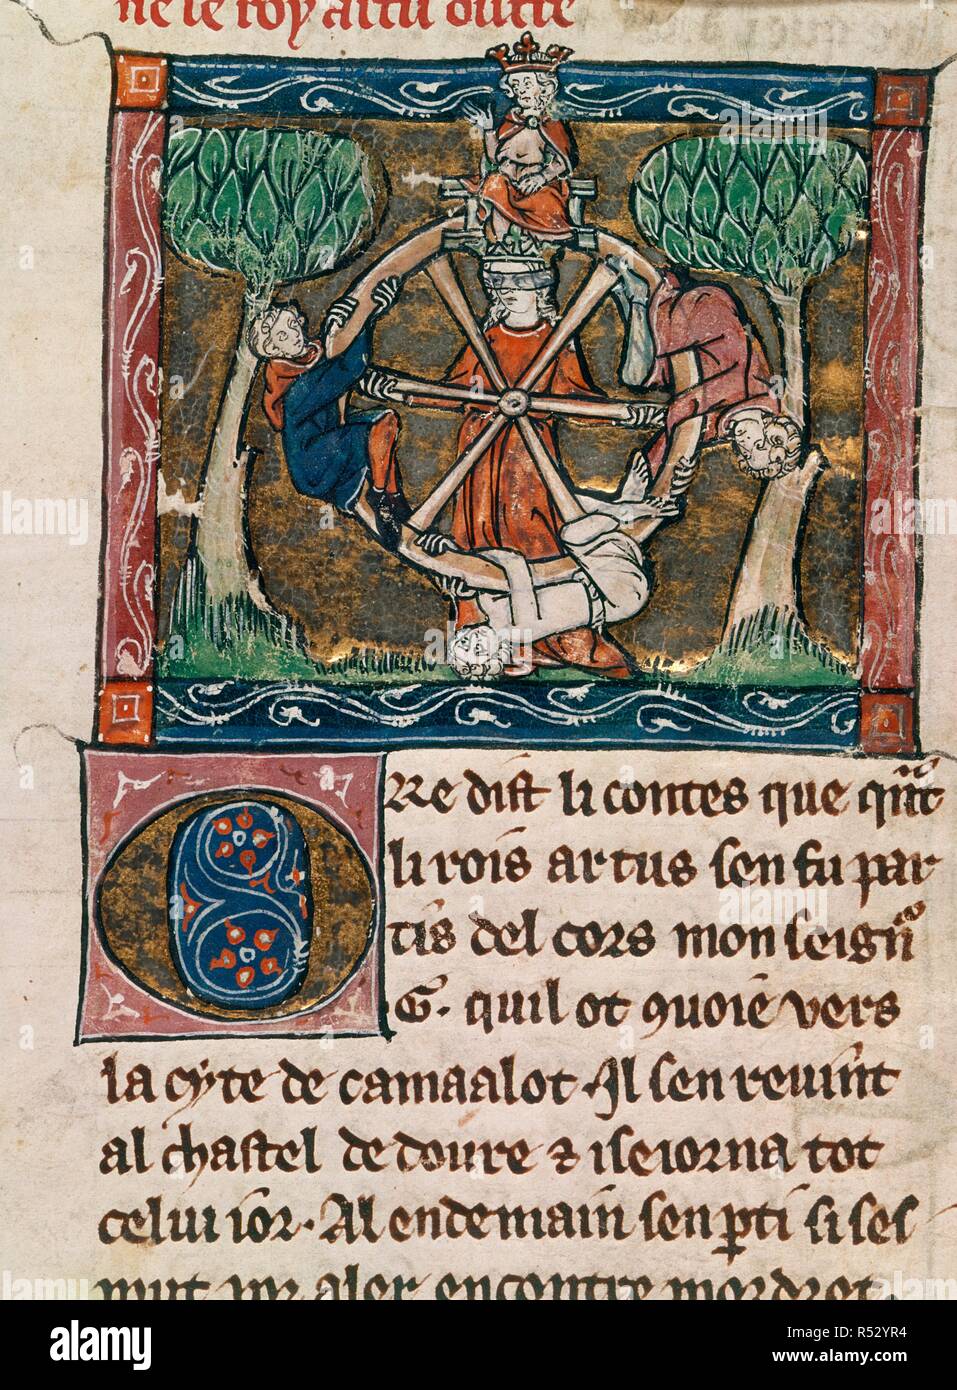 ne le roy artu outre
Re dist li contes que qunt
li rois artus sen fu par
tis del cors mon seignr
G. quil ot 9uoie vers
la cyte de camaalot. Il sen revint
al chastel de doure & iseiorna tot
celui ior. Al endemain sen pti si ses
mut por aler encontre mordret.
alamy
alamy
Image ID: R52YR4
www.alamy.com